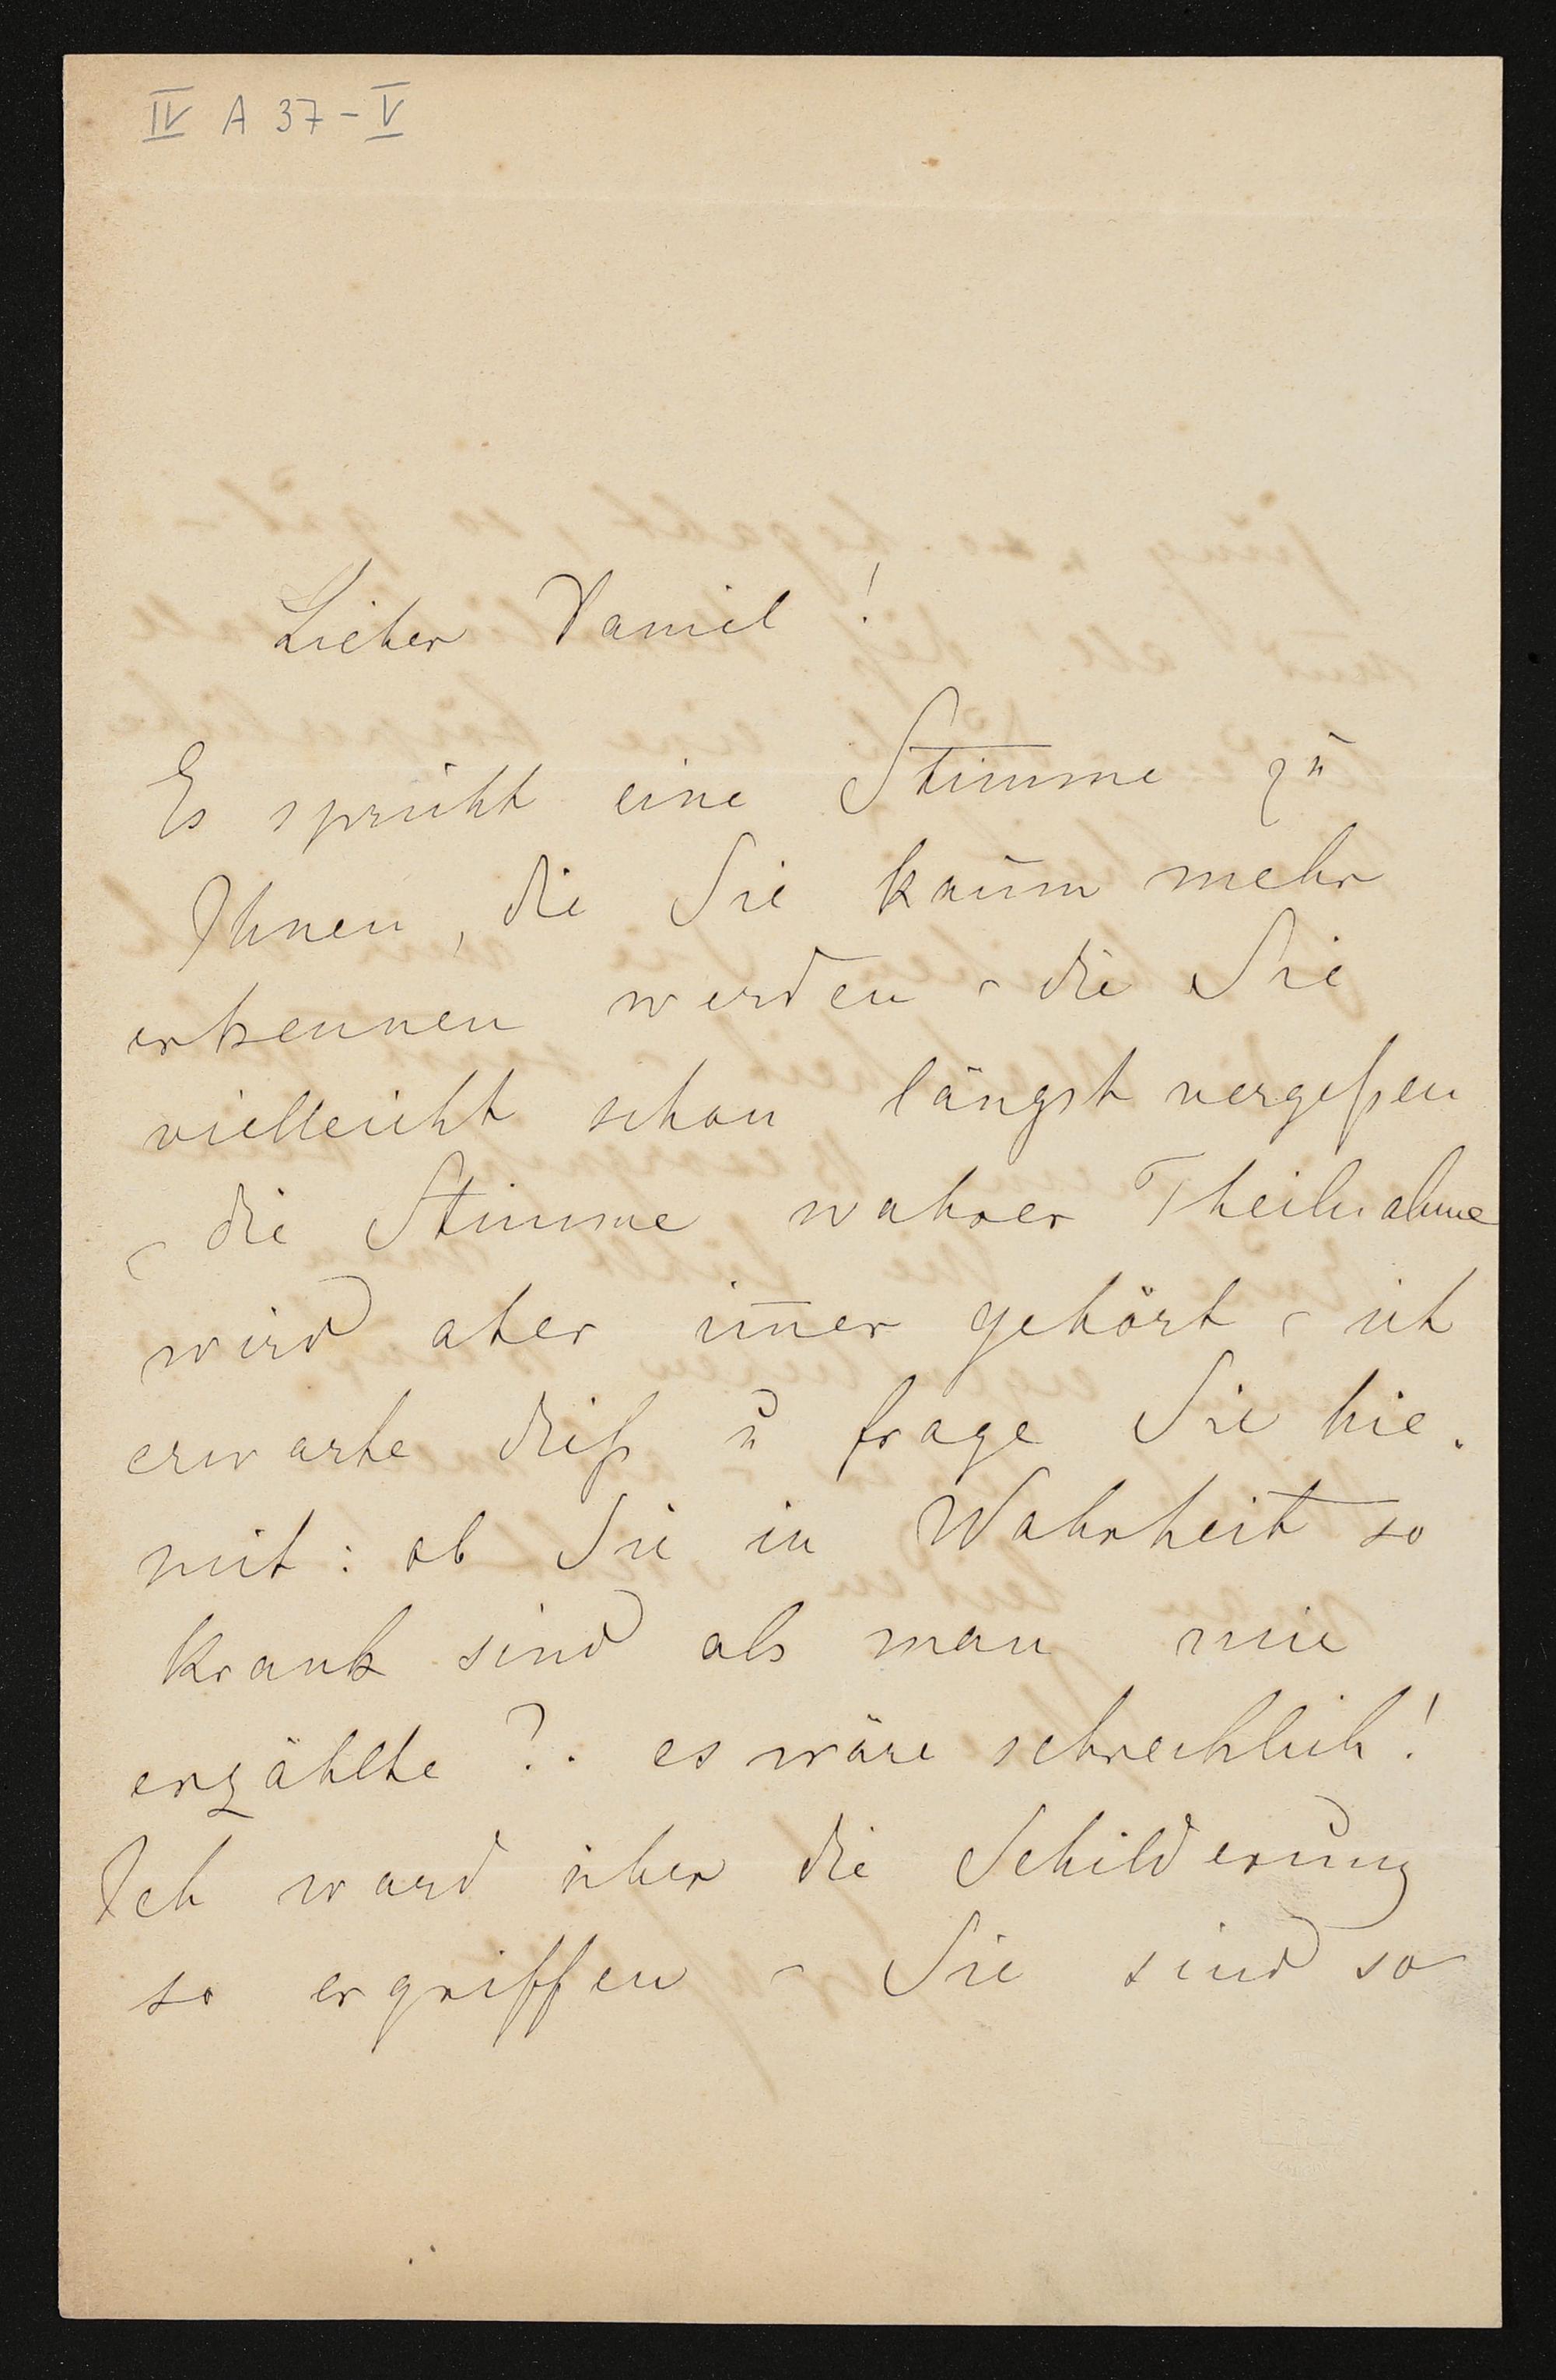 IV A 37-V
Lieber Daniel!
Es spricht eine Stimme zu
Ihnen, die Sie kaum mehr
erkennen werden - die Sie
vielleicht schon längst vergeßen
- die Stimme wahrer Theilnahme
wird aber im̅er gehört - ich
erwarte dieß u frage Sie hie-
mit: ob Sie in Wahrheit so
krank sind als man mir
erzählte?. es wäre schrecklich!
Ich ward über die Schilderung
so ergriffen - Sie sind so